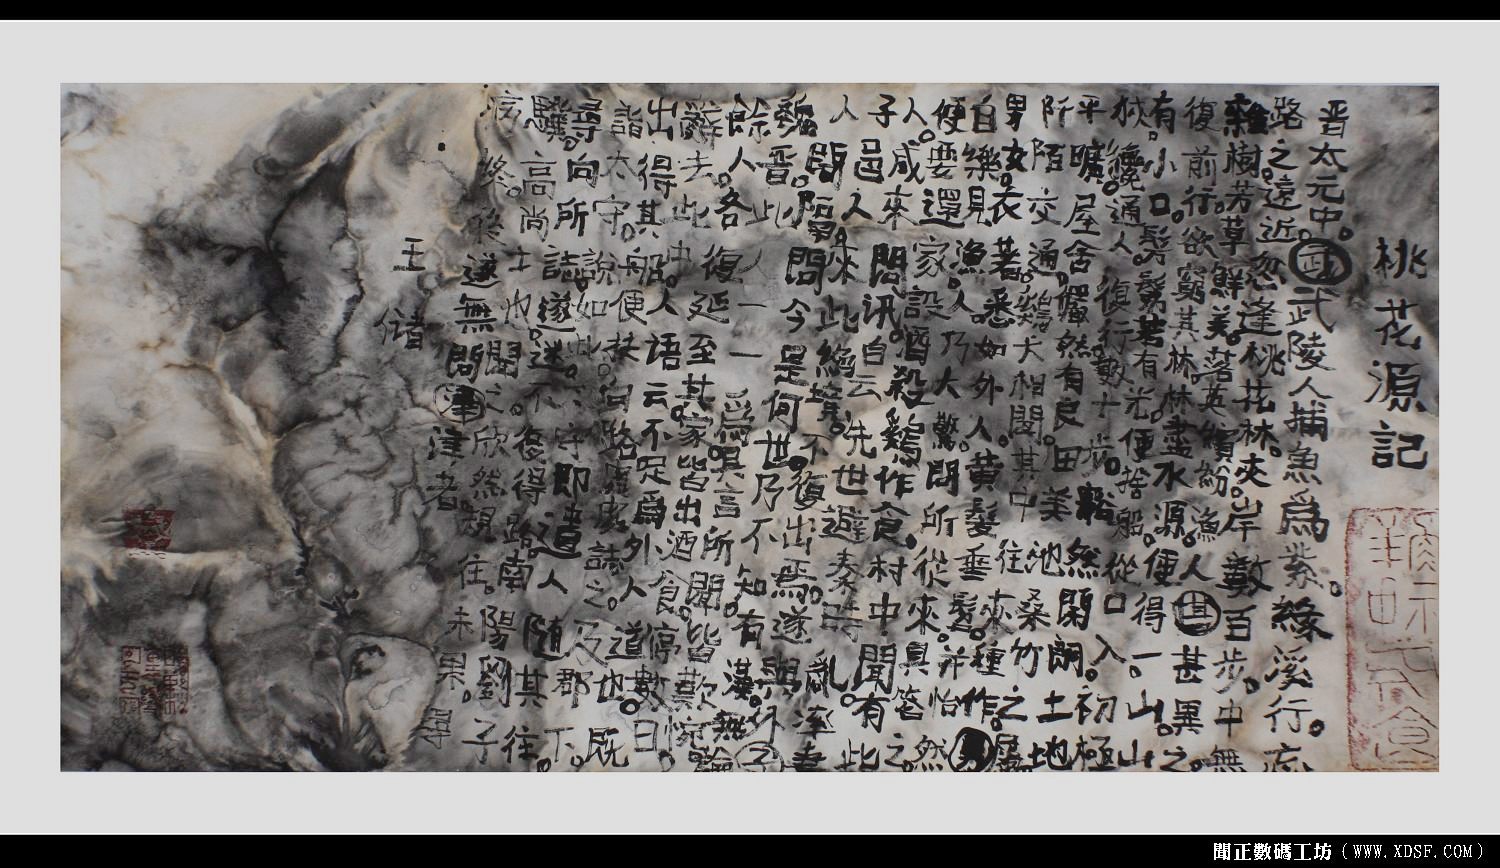 桃花源記
晋太元中。武武陵人捕魚爲業。緣溪行。忘
路之遠近忽逢桃花林。夾岸數百步。中無
雜樹芳草。鮮美。落英繽紛漁人甚甚異之。
復前行欲窮其林林盡水源。便得一山。山
有。小口。髣髴若有光。便捨船從口入。初極
狹。纔通人復行數十步。豁然開朗。土地
平曠。屋舍儼然有良田美池桑竹之屬
阡陌交通。雞犬相聞。其中往來種作。男
男女衣著。悉如外人黃髮垂髫。並怡然
自樂見漁人。乃大驚問所從來。具答之。
便要還家設酒殺雞作食村中聞有此
人。咸來問訊。自云先世避秦時亂。率妻
子邑人來此絕境。不復出焉。遂與外子
人間隔。問今是何世。乃不知有漢。無論
魏晋。此人一一爲具言所聞皆歎惋
餘人各復延至其家皆出酒食。停數日
辭去。此中。人語云。不足爲外人道也。既
出得其船。便扶向路處處誌之。及郡下。
詣太守。說如此。太守即遣人隨其往。
尋向所誌。遂迷。不復得路南陽劉子
驥。高尚士也聞之。欣然規往。未果。尋
病終。後遂無問津津者。
王儲
聞正數碼工坊（WWW.XDSF.COM）